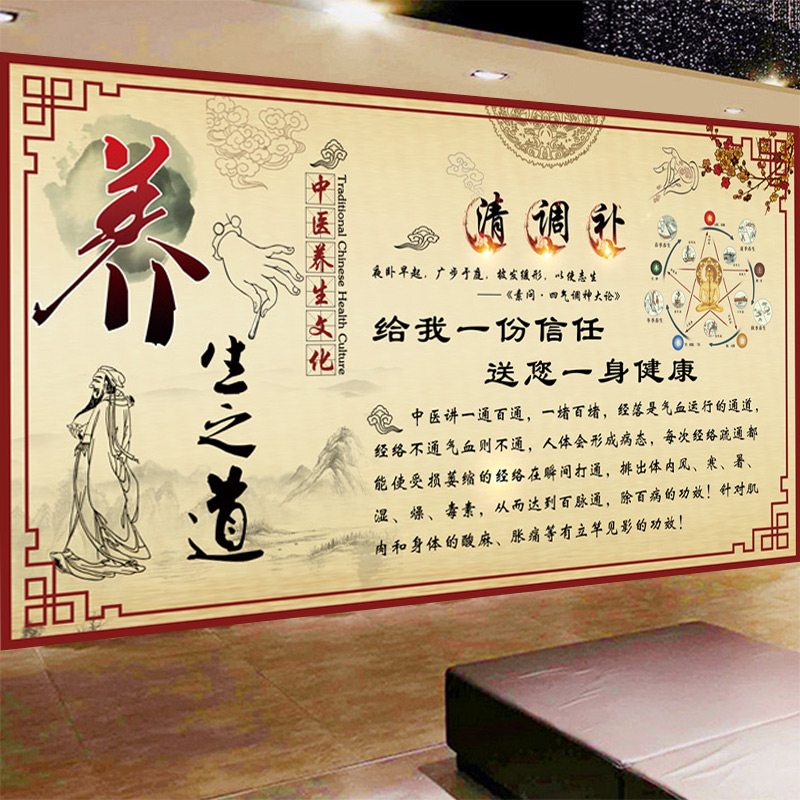 养
生之道
中医养生文化
Traditional Chinese Health Culture
清调补
夜卧早起，广步于庭，被发缓形，以使志生
——《素问·四气调神大论》
给我一份信任
送您一身健康
中医讲一通百通，一堵百堵，经落是气血运行的通道，
经络不通气血则不通，人体会形成病态，每次经络疏通都
能使受损萎缩的经络在瞬间打通，排出体内风、寒、暑、
湿、燥、毒素，从而达到百脉通，除百病的功效！针对肌
肉和身体的酸麻、胀痛等有立竿见影的功效！